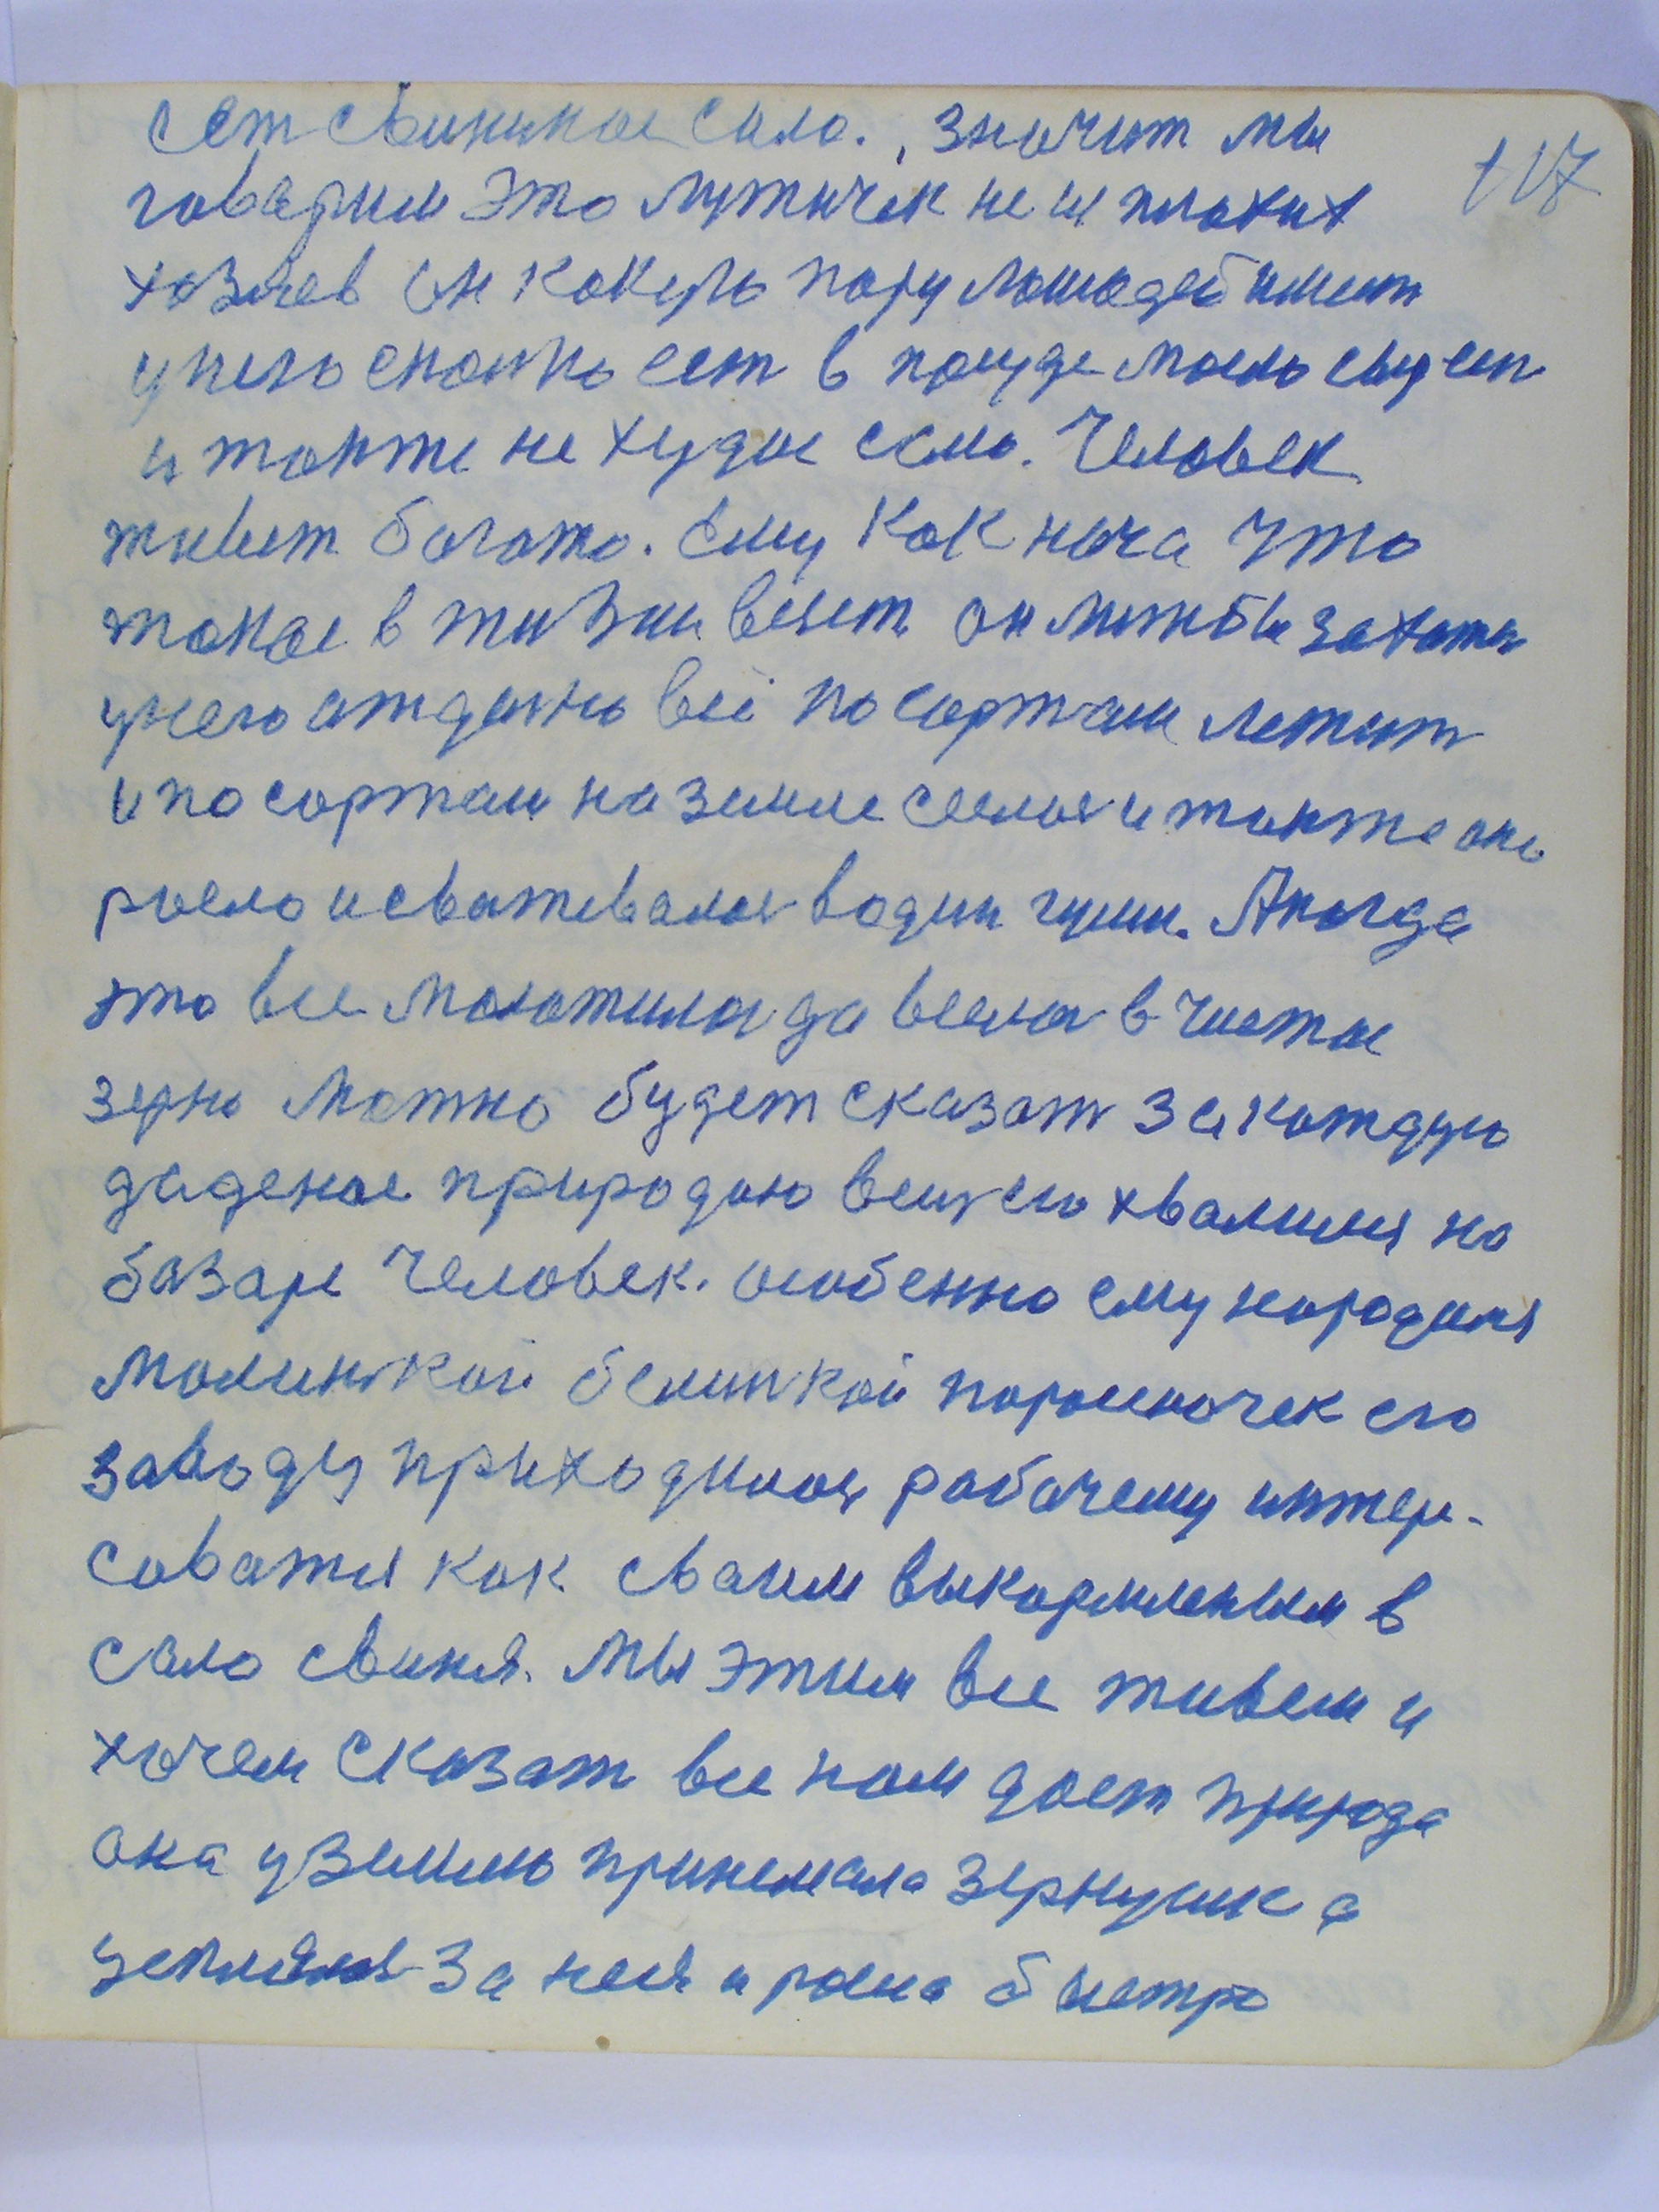 сет свинное сало., значит мы
117
говарим это мужичек не ис плохих
хозяев он какуто пару лошадей имеит
унего скотино ест в посуде масло сыр ест
и тапже не худое сало. Человек
живет богато. Ему как нача что
токое в жизни весет он лиж бы захател
унего отдельно всё по сортам лежит
и по сортам на земле сеелося и танже оно
росло и сваживалося водин гумн. Акогда
это все молотилося да веелося в чистое
зерно Можно будет сказат за каждую
даденое природою вещ его хвалился на
базаре Человек. особенно ему народился
малинкой белинкой поросеночек его
заводу приходилося рабочему интере-
соватся как сваим выкормленым в
сало свиня. Мы этим все живем и
хочем сказат все нам дает природа
она у землю принемала зернушка
уеплялся за нея и росла быстро